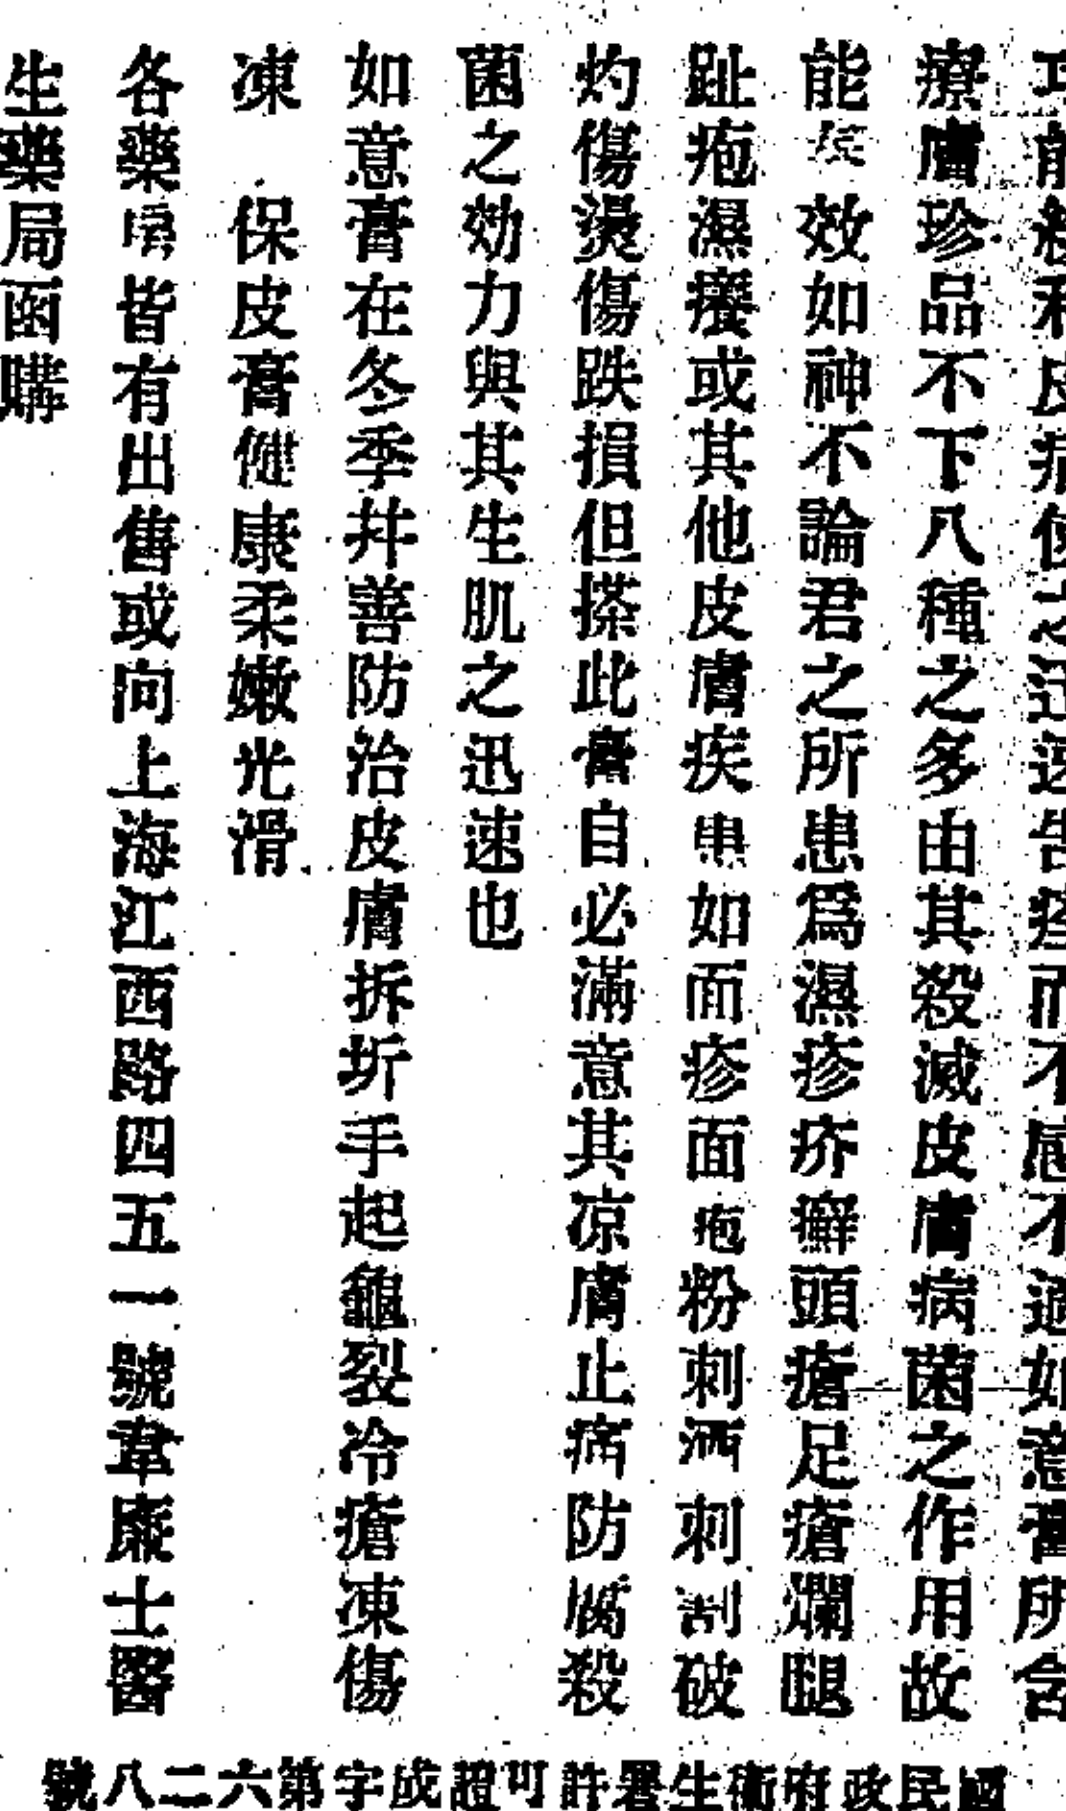 療膚珍品不下八種之多由其殺滅皮膚病菌之作用故
能 效如神不論君之所患爲濕疹疥癬頭瘡足瘡爛腿
趾疱濕癢或其他皮膚疾患如面疹面疱粉刺酒刺割破
灼傷燙傷跌損但搽此膏自必滿意其凉膚止痛防腐殺
菌之効力與其生肌之迅速也
如意膏在冬季幷善防治皮膚拆坼手起龜裂冷瘡凍傷
凍 保皮膏健康柔嫩光滑
各藥房皆有出售或向上海江西路四五一號韋廉士醫
生藥局函購
國民政府衛生署許可證成字第六二八號